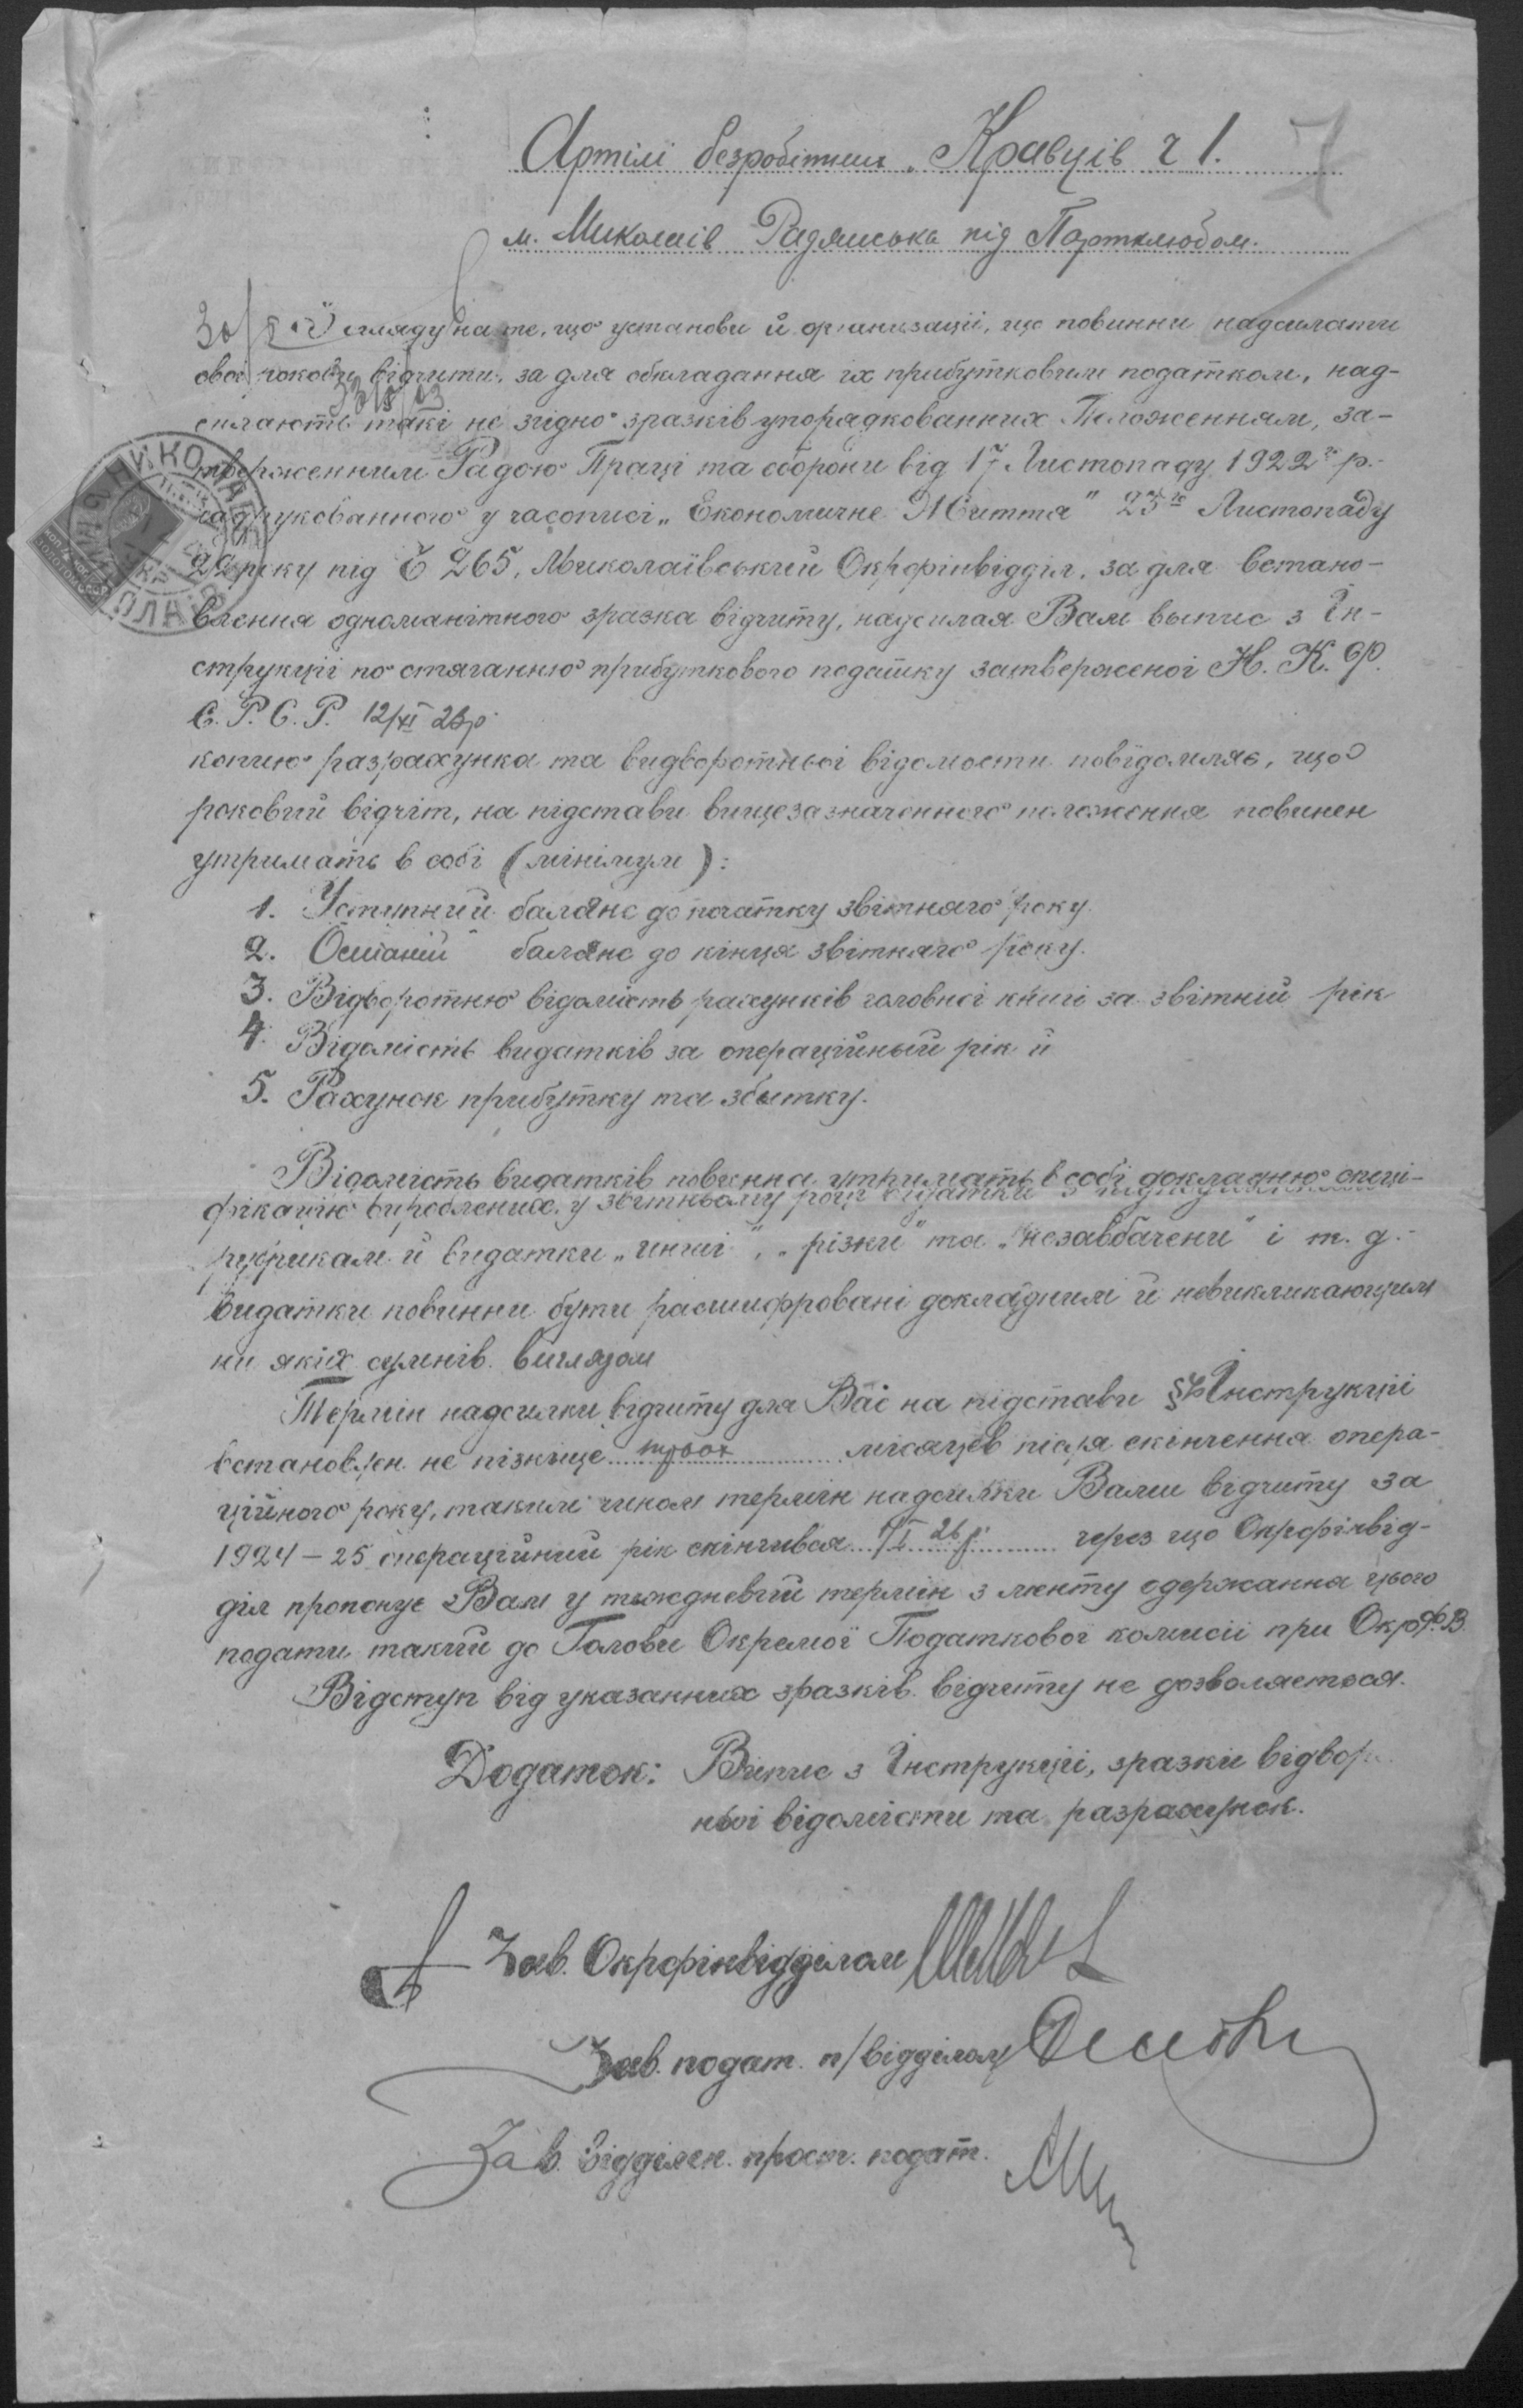 Артілі безробітних „Кравців ч 1.
7
м. Миколаїв Радянська під Партклюбом.
З огляду на те, що установи й організації, що повинни надсилати
свої рокові відчити, за для обкладання їх прибутковим податком, над-
силають такі не згідно зразків упорядкованних Положенням, за-
твердженним Радою Праці та оборони від 17 Листопаду 1922 р.
надрукованного у часописі „Економичне Життя" 23го Листопаду
22 року під Č 265, Миколаївський Окрфінвідділ, за для встано-
влення одноманітного зразка відчиту, надсилая Вам выпис з Ін-
струкції по стяганню прибуткового податку затверженої Н. К. Ф.
С. Р. С. Р. 12/XI 23р
копию разрахунка та видворотньої відомости повідомляє, що
роковий відчіт, на підстави вищезазначенного положення повинен
утримать в собі (мінімум):
1. Уступний баланс до початку звітняго року.
2. Останій баланс до кінця звітняго року.
3. Відворотню відомість рахунків головної книгі за звітний рік
4. Відомість видатків за операційный рік й
5. Рахунок прибутку та збытку.
Відомість видатків повинна утримать в собі докладню специ-
фікацію вироблених у звітньому році видатки з
рубрикам й видатки „инші", „різки" та „незавбачени" і т. д.
видатки повинни бути расшифровані докладним й невикликающим
ни якіх сумнів. виглядом
Термін надсилки відчиту для Вас на підстави § Інструкції
встановлен не пізніще трьох місяцев після скінчення опера-
ційного року, таким чином термін надсилки Вами відчиту за
1924 – 25 операційний рік скінчився 1/I 26 р. через що Окрфінвід-
діл пропонує Вам у тыждневий термін з менту одержання цього
подати такий до Голови Окремої Податкової комисії при Окрф.В.
Відступ від указанних зразків відчиту не дозволяєтося.
Додаток: Випис з Інструкції, зразки відвор
ньої відомісти та разрахунок.
Зав. Окрфінвідділом
Зав. подат. п/відділом
Зав. Відділен. прост. подат.